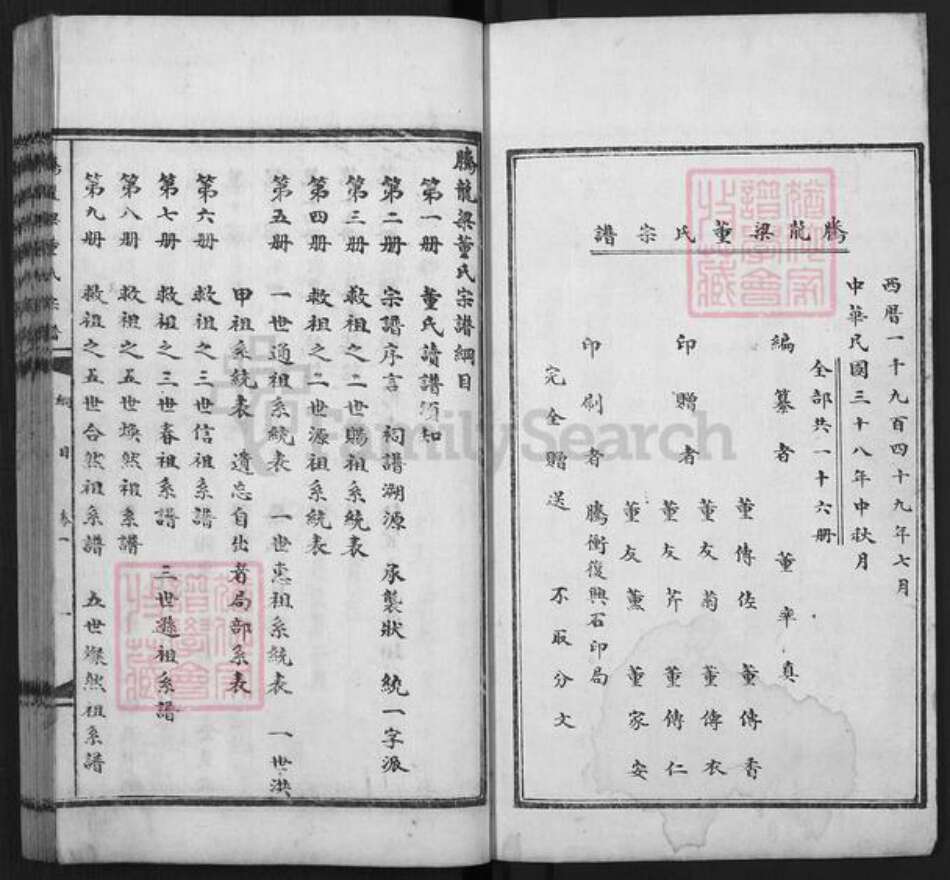 騰龍梁董氏宗譜
西曆一千九百四十九年七月
中華民國三十八年中秋月
全部共一十六册
編纂者 董率真
印贈者 董傳佐 董傳香
董友菊 董傳衣
董友芹 董傳仁
董友薰 董家安
印刷者 騰衝復興石印局
完全贈送 不取分文
騰龍梁董氏宗譜綱目
第一册 董氏讀譜須知
第二册 宗譜序言 祠譜溯源 承襲狀 統一字派
第三册 救祖之二世賜祖系統表
第四册 救祖之二世源祖系統表
第五册 一世通祖系統表 一世惠祖系統表 一世洪
甲祖系統表 遺忘自出者局部系表
第六册 救祖之三世信祖系譜
第七册 救祖之三世春祖系譜 三世遜祖系譜
第八册 救祖之五世煥然祖系譜
第九册 救祖之五世合然祖系譜 五世燦然祖系譜
綱目 卷一 一
FamilySearch